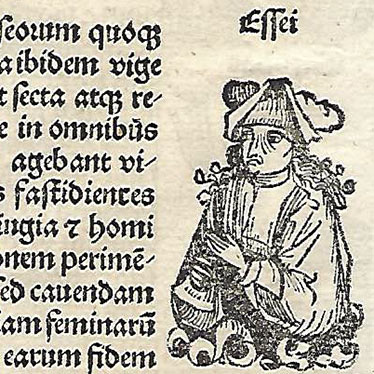 Essei
seorum quoqꝫ
a ibidem vige
t secta atqꝫ re-
e in omnibꝰ
agebant vi-
s fastidientes
iugia ⁊ homi
onem perimē-
sed cauendam
iam feminarū
earum fidem